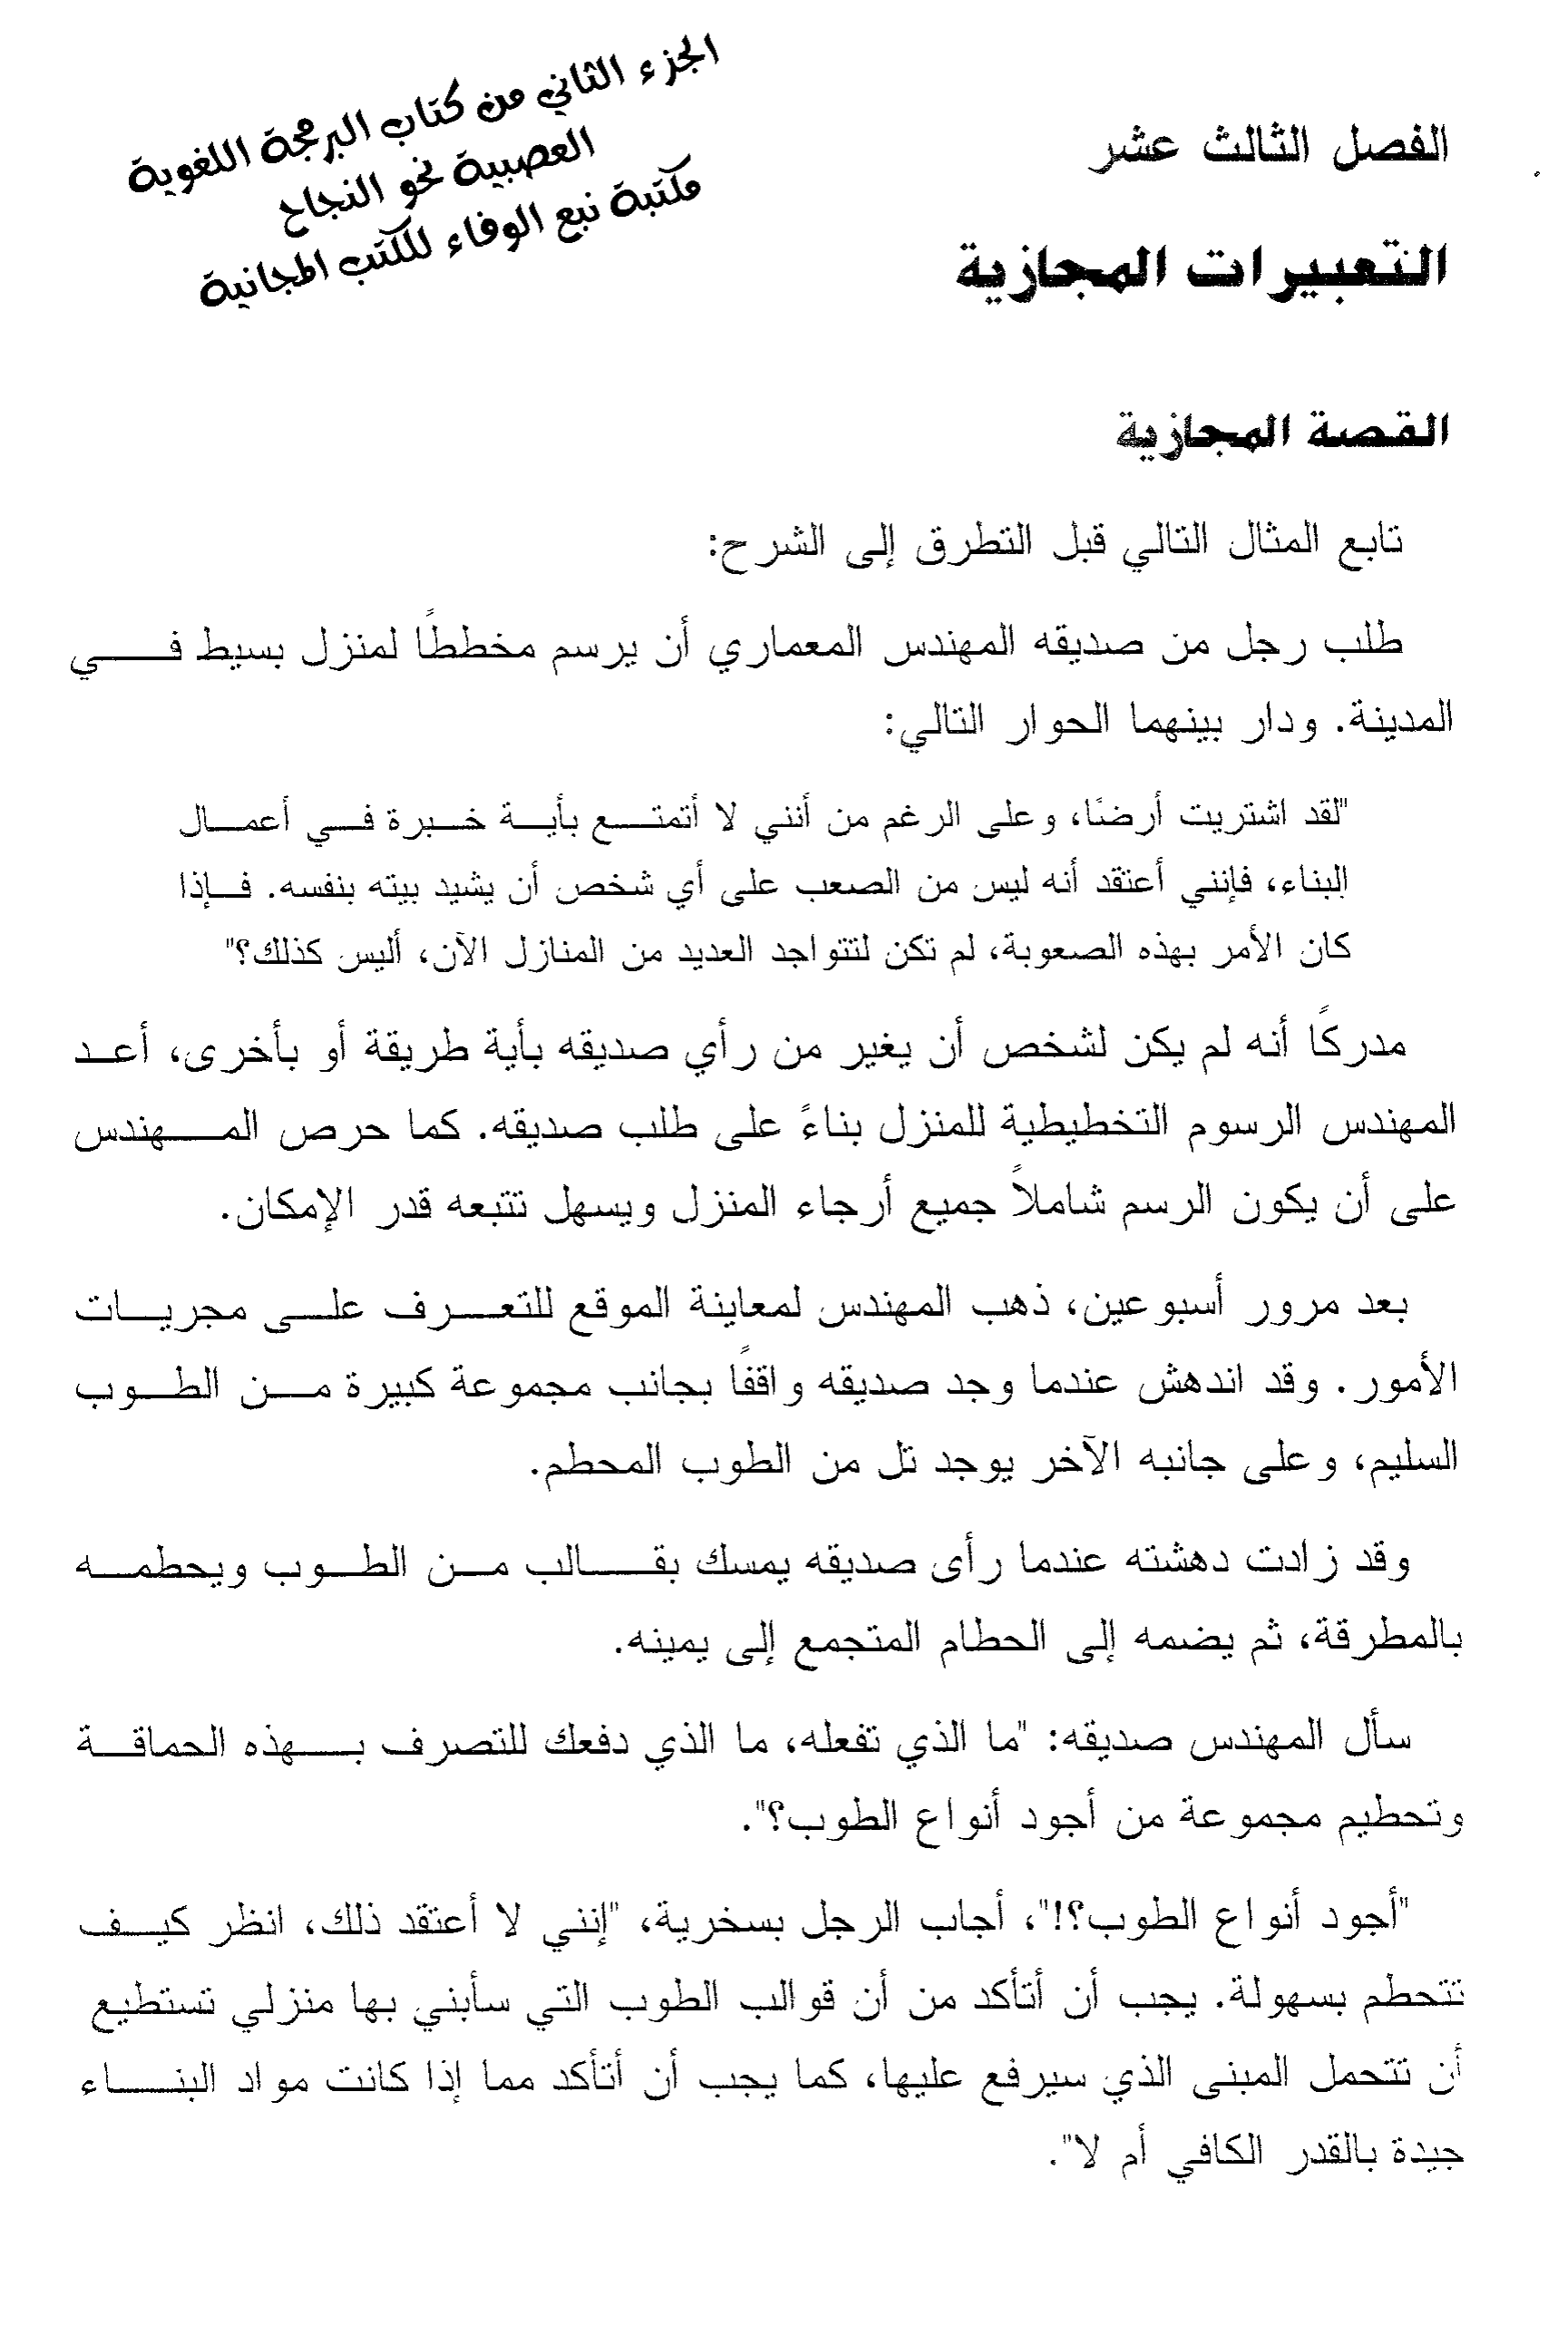 الجزء الثاني من كتاب البرمجة اللغوية
العصبية نحو النجاح
مكتبة نبع الوفاء للكتب المجانية
الفصل الثالث عشر
التعبيرات المجازية
القصة المجازية
تابع المثال التالي قبل التطرق إلى الشرح:
طلب رجل من صديقه المهندس المعماري أن يرسم مخططًا لمنزل بسيط في
المدينة. ودار بينهما الحوار التالي:
"لقد اشتريت أرضًا، وعلى الرغم من أنني لا أتمتع بأية خبرة في أعمال
البناء، فإنني أعتقد أنه ليس من الصعب على أي شخص أن يشيد بيته بنفسه. فإذا
كان الأمر بهذه الصعوبة، لم تكن لتتواجد العديد من المنازل الآن، أليس كذلك؟"
مدركًا أنه لم يكن لشخص أن يغير من رأي صديقه بأية طريقة أو بأخرى، أعد
المهندس الرسوم التخطيطية للمنزل بناءً على طلب صديقه. كما حرص المهندس
على أن يكون الرسم شاملاً جميع أرجاء المنزل ويسهل تتبعه قدر الإمكان.
بعد مرور أسبوعين، ذهب المهندس لمعاينة الموقع للتعرف على مجريات
الأمور. وقد اندهش عندما وجد صديقه واقفًا بجانب مجموعة كبيرة من الطوب
السليم، وعلى جانبه الآخر يوجد تل من الطوب المحطم.
وقد زادت دهشته عندما رأى صديقه يمسك بقالب من الطوب ويحطمه
بالمطرقة، ثم يضمه إلى الحطام المتجمع إلى يمينه.
سأل المهندس صديقه: "ما الذي تفعله، ما الذي دفعك للتصرف بهذه الحماقة
وتحطيم مجموعة من أجود أنواع الطوب؟".
"أجود أنواع الطوب؟!"، أجاب الرجل بسخرية، "إنني لا أعتقد ذلك، انظر كيف
تتحطم بسهولة. يجب أن أتأكد من أن قوالب الطوب التي سأبني بها منزلي تستطيع
أن تتحمل المبنى الذي سيرفع عليها، كما يجب أن أتأكد مما إذا كانت مواد البناء
جيدة بالقدر الكافي أم لا".